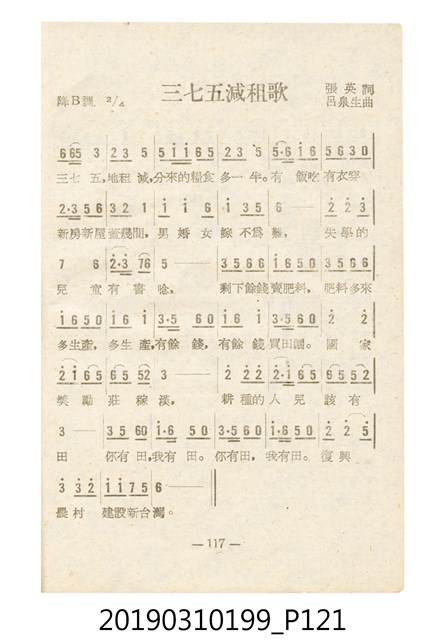 三七五減租歌
降B調 2/4
張英詞
呂泉生曲
665 3 235 51165 235 5·616 5630
三七五,地租減,分來的糧食多一半。有飯吃有衣穿
2·356 321 116 135 6— 223
新房新屋蓋幾間,男婚女嫁不為難,失學的
7 6 2·3 76 5— 3566 1650 3566
兒童有書唸,剩下餘錢賣肥料,肥料多來
1650 161 3·5 60 161 3·560 2 2
多生產,多生產,有餘錢,有餘錢買田園。國家
2165 6552 3— 222 2·165 6552
獎勵莊稼漢,耕種的人兒該有
3— 3560 1·6 50 3·560 1·650 225
田 你有田,我有田。你有田,我有田。復興
3 332 11756 6—
農村 建設新台灣。
—117—
20190310199_P121